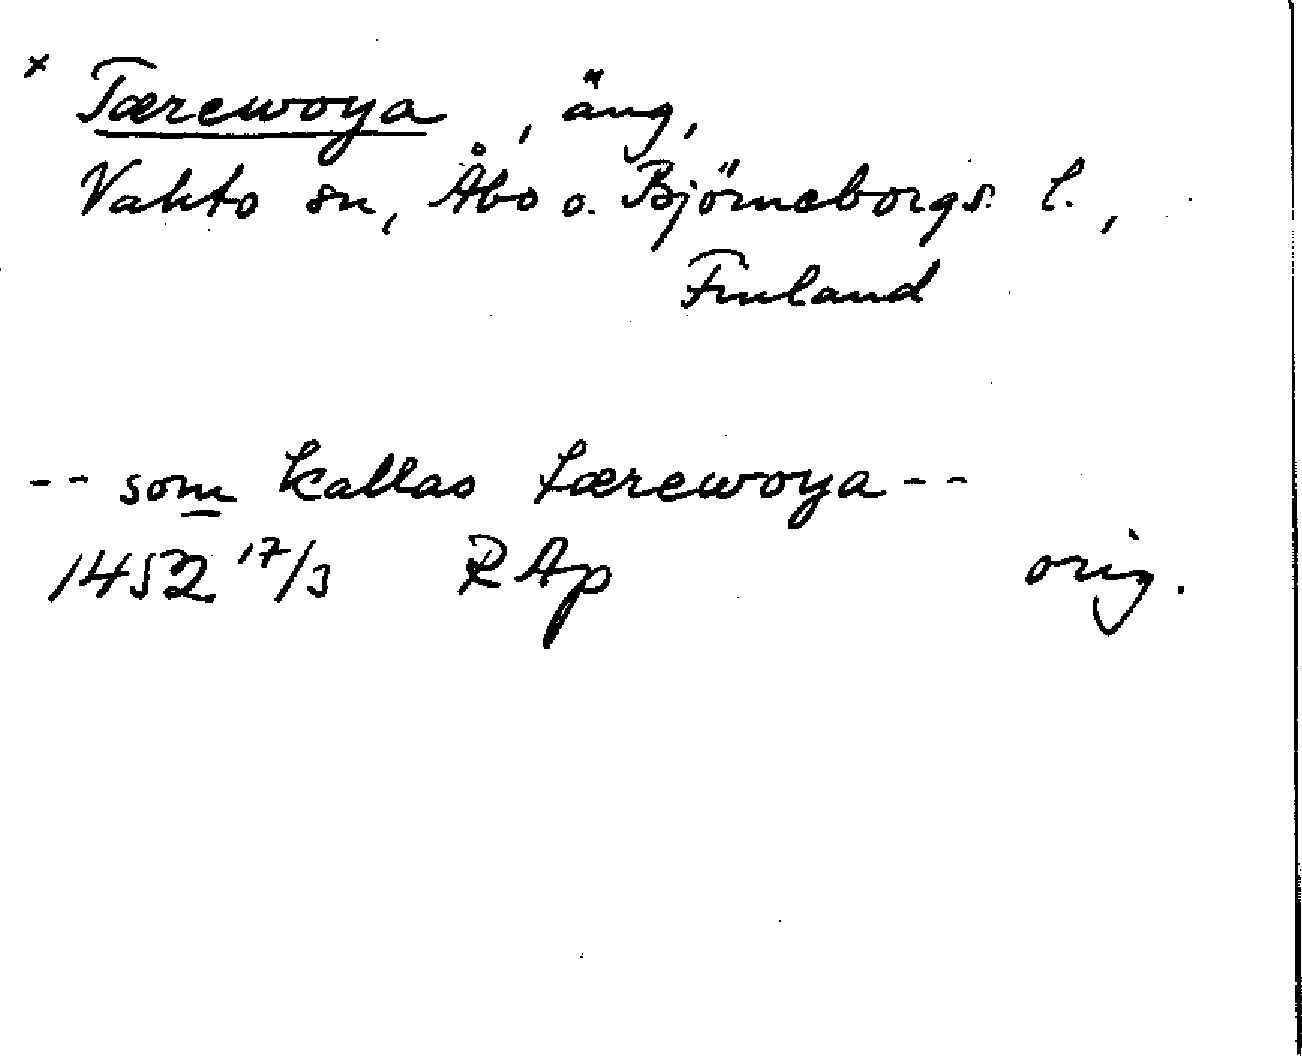 × Tærewoya, äng,
Vahto sn, Åbo o. Björneborgs l.,
Finland
-- som kallas tærewoya --
1452 17/3 RAp orig.